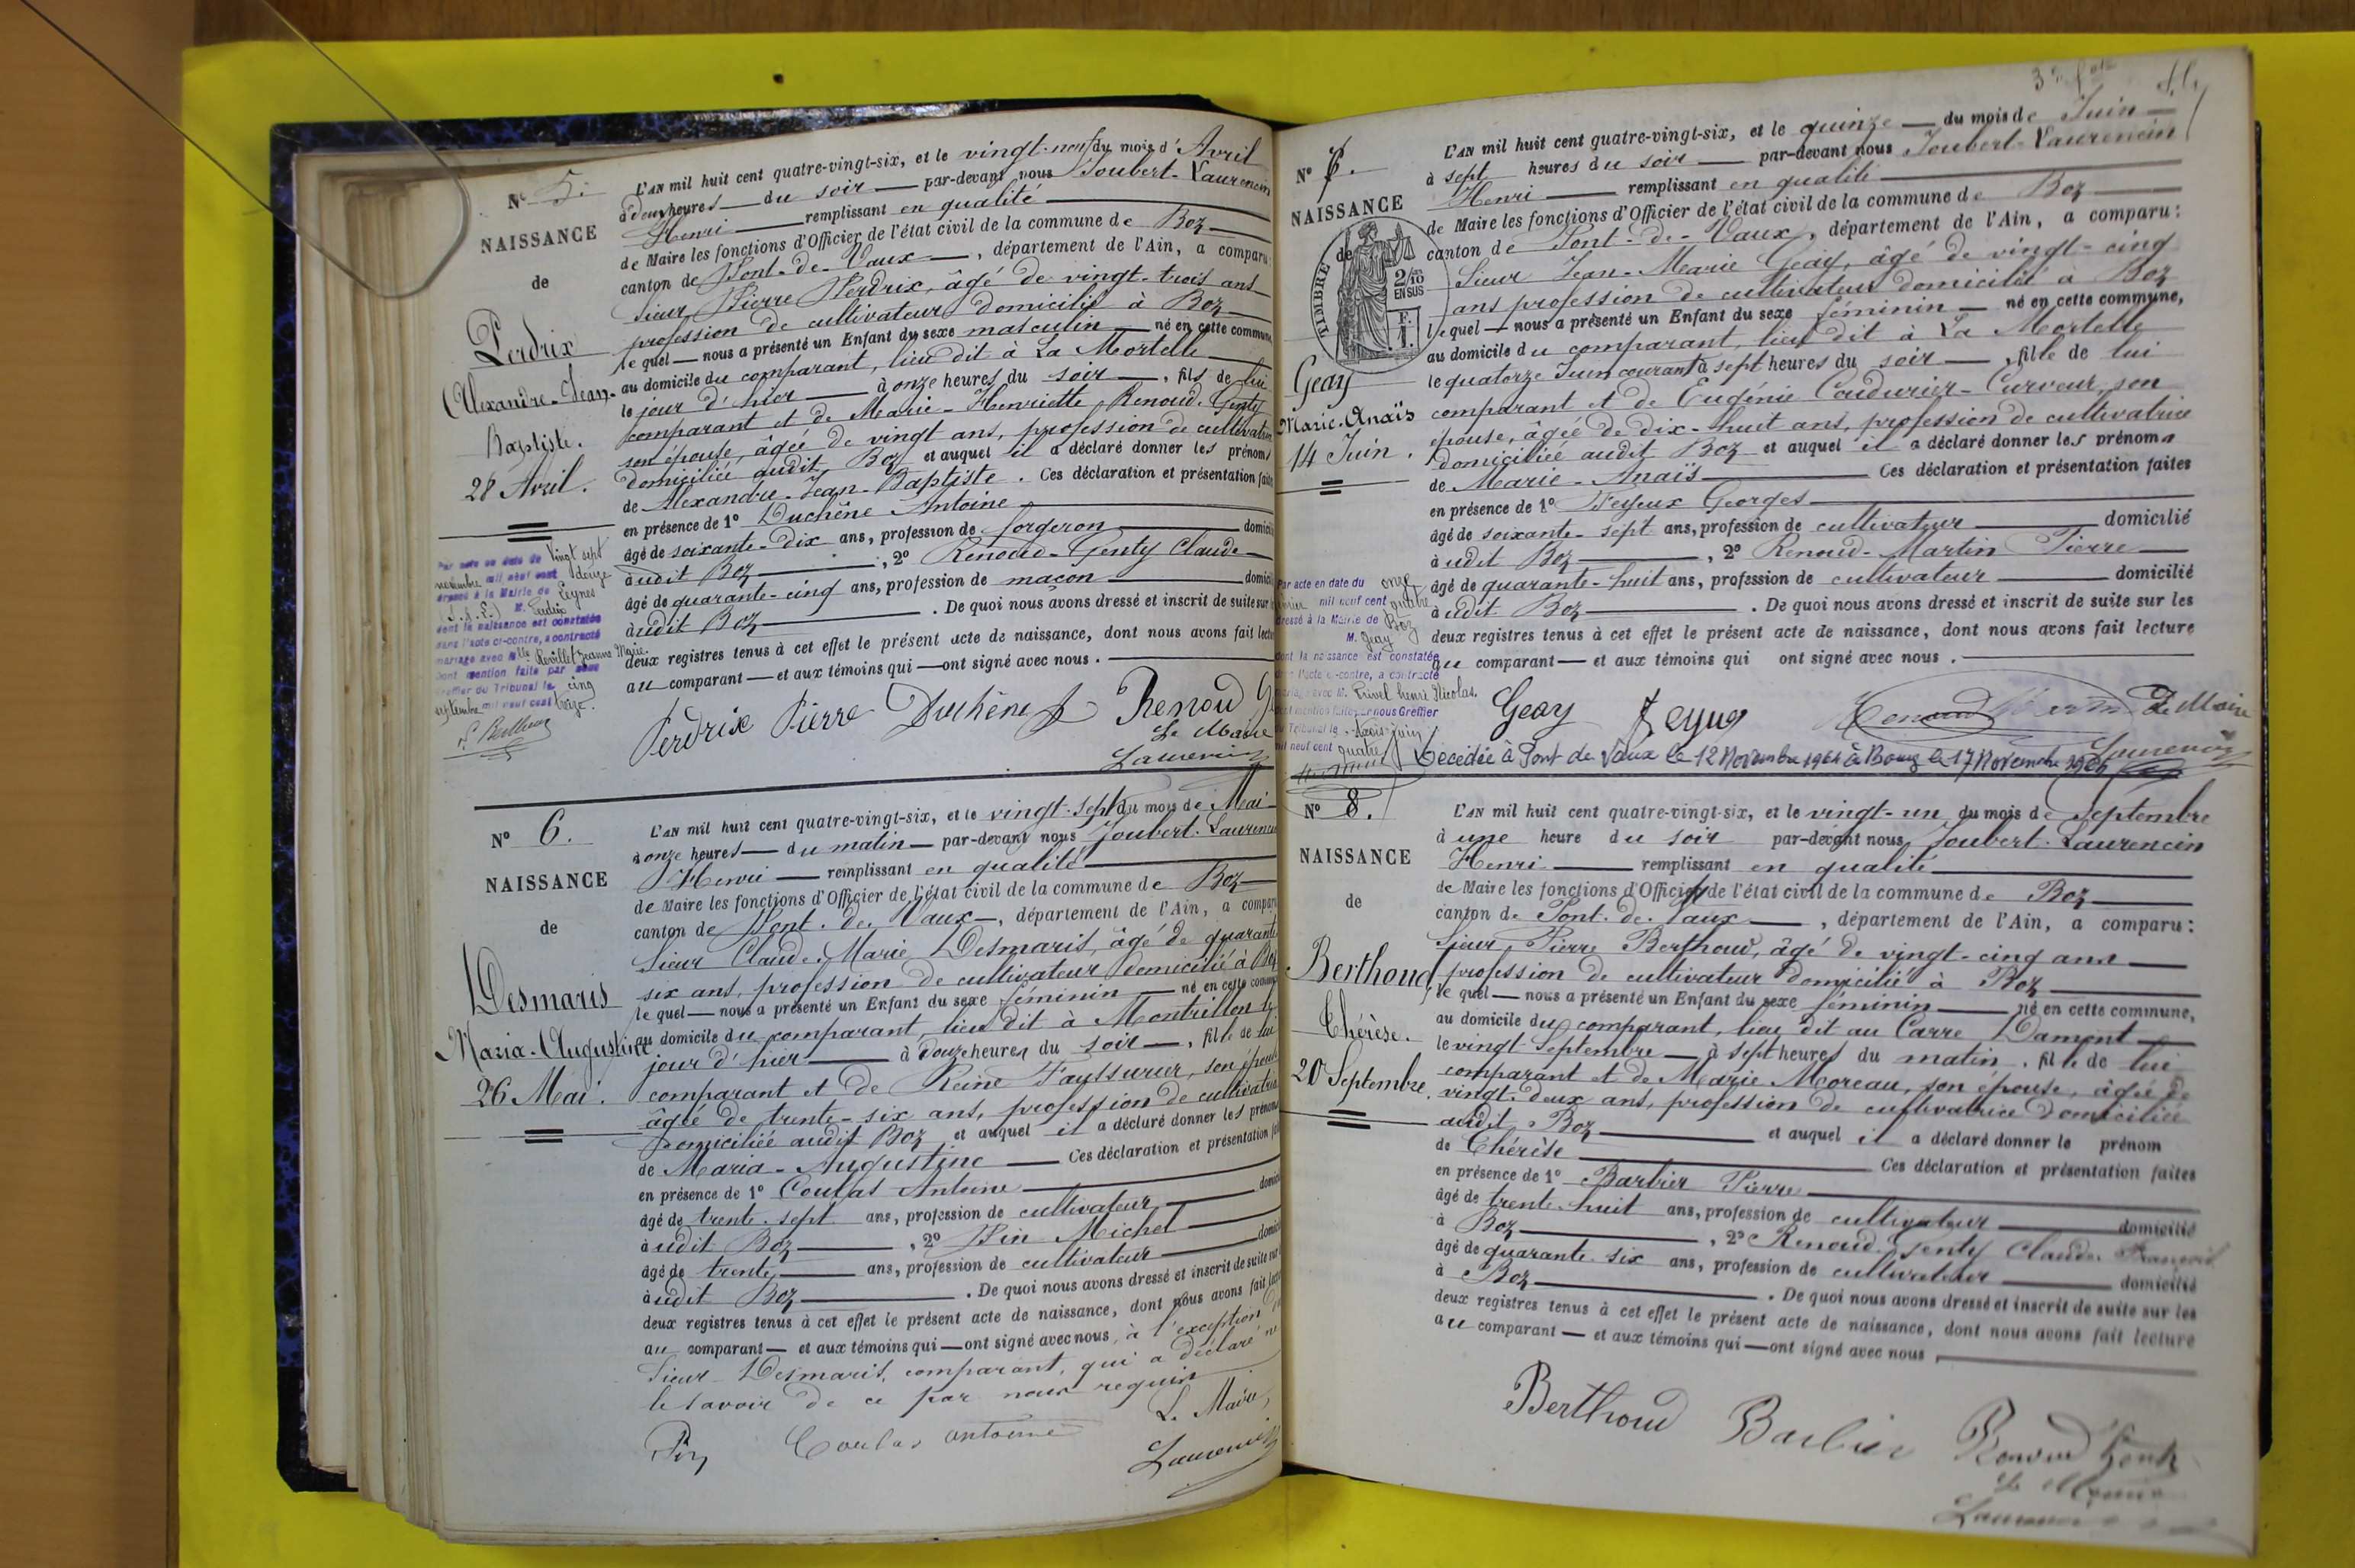 N° 5.
NAISSANCE
de
Perdrix
Alexandre-Jean-
Baptiste.
28 Avril.
L'AN mil huit cent quatre-vingt-six, et le vingt-neuf du mois d'Avril
à deux heures du soir par-devant nous Joubert-Laurencin
Henri remplissant en qualité
de Maire les fonctions d'Officier de l'état civil de la commune de Boz
canton de Pont-de-Vaux, département de l'Ain, a comparu:
Sieur Pierre Perdrix, âgé de vingt-trois ans
profession de cultivateur domicilié à Boz
lequel nous a présenté un Enfant du sexe masculin né en cette commune,
au domicile du comparant, lieu dit à La Mortelle
le jour d'hier à onze heures du soir, fils de lui
comparant et de Marie-Henriette Renoud-Genty
son épouse, âgée de vingt ans, profession de cultivatrice
domiciliée audit Boz et auquel il a déclaré donner les prénoms
de Alexandre-Jean-Baptiste. Ces déclaration et présentation faites
en présence de 1° Duchêne Antoine
âgé de soixante-dix ans, profession de forgeron domicilié
à udit Boz, 2° Renoud-Genty Claude
âgé de quarante-cinq ans, profession de maçon domicilié
à udit Boz. De quoi nous avons dressé et inscrit de suite sur les
deux registres tenus à cet effet le présent acte de naissance, dont nous avons fait lecture
au comparant et aux témoins qui ont signé avec nous.
Perdrix Pierre Duchêne Renoud
Le Maire
Laurencin
Par acte en date du vingt sept
novembre mil neuf cent douze
dressé à la Mairie de Leynes
(S.&L.) M. Perdrix
dont la naissance est constatée
dans l'acte ci-contre, a contracté
mariage avec Mlle Revillet Jeanne Marie.
Dont mention faite par nous
Greffier du Tribunal le cinq
septembre mil neuf cent treize.
N° 6.
NAISSANCE
de
Desmaris
Maria-Augustine
26 Mai.
L'AN mil huit cent quatre-vingt-six, et le vingt-sept du mois de Mai
à onze heures du matin par-devant nous Joubert-Laurencin
Henri remplissant en qualité
de Maire les fonctions d'Officier de l'état civil de la commune de Boz
canton de Pont-de-Vaux, département de l'Ain, a comparu
Sieur Claude-Marie Desmaris, âgé de quarante
six ans, profession de cultivateur domicilié à Boz
lequel nous a présenté un Enfant du sexe féminin né en cette commune
au domicile du comparant, lieu dit à Montrillon le
jour d'hier à douze heures du soir, fille de lui
comparant et de Reine Faussurier, son épouse
âgée de trente-six ans, profession de cultivatrice
domiciliée audit Boz et auquel il a déclaré donner les prénoms
de Maria-Augustine Ces déclaration et présentation
en présence de 1° Coulas Antoine
âgé de trente-sept ans, profession de cultivateur
à udit Boz, 2° Pin Michel
âgé de trente ans, profession de cultivateur
à udit Boz. De quoi nous avons dressé et inscrit de suite sur
deux registres tenus à cet effet le présent acte de naissance, dont nous avons fait lecture
au comparant et aux témoins qui ont signé avec nous, à l'exception
Sieur Desmaris, comparant, qui a déclaré ne
le savoir de ce par nous requis
Le Maire,
Pin Coulas antoine Laurencin
N° 7.
NAISSANCE
de
TIMBRE
2/10
EN SUS
Geay
Marie-Anaïs
14 Juin.
L'AN mil huit cent quatre-vingt-six, et le quinze du mois de Juin
à sept heures du soir par-devant nous Joubert-Laurencin
Henri remplissant en qualité
de Maire les fonctions d'Officier de l'état civil de la commune de Boz
canton de Pont-de-Vaux, département de l'Ain, a comparu:
Sieur Jean-Marie Geay, âgé de vingt-cinq
ans profession de cultivateur domicilié à Boz
lequel nous a présenté un Enfant du sexe féminin né en cette commune,
au domicile du comparant, lieu dit à La Mortelle
le quatorze Juin courant à sept heures du soir, fille de lui
comparant et de Eugénie Coudurier-Curveur, son
épouse, âgée de dix-huit ans, profession de cultivatrice
domiciliée audit Boz et auquel il a déclaré donner les prénoms
de Marie-Anaïs Ces déclaration et présentation faites
en présence de 1° Feyeux Georges
âgé de soixante-sept ans, profession de cultivateur domicilié
à udit Boz, 2° Renoud-Martin Pierre
âgé de quarante-huit ans, profession de cultivateur domicilié
à udit Boz. De quoi nous avons dressé et inscrit de suite sur les
deux registres tenus à cet effet le présent acte de naissance, dont nous avons fait lecture
au comparant et aux témoins qui ont signé avec nous.
Geay Le Maire
Laurencin
Décédée à Pont de Vaux le 12 Novembre 1964 à Bourg le 17 Novembre 1964
Par acte en date du onze
février mil neuf cent quatre
dressé à la Mairie de Boz
M. Geay
dont la naissance est constatée
dans l'acte ci-contre, a contracté
mariage avec M. Privel henri Nicolas.
Dont mention faite par nous Greffier
du Tribunal le trois juin
mil neuf cent quatre
N° 8.
NAISSANCE
de
Berthoud
Thérèse.
20 Septembre.
L'AN mil huit cent quatre-vingt-six, et le vingt-un du mois de Septembre
à une heure du soir par-devant nous Joubert-Laurencin
Henri remplissant en qualité
de Maire les fonctions d'Officier de l'état civil de la commune de Boz
canton de Pont-de-Vaux, département de l'Ain, a comparu:
Sieur Pierre Berthoud, âgé de vingt-cinq ans
profession de cultivateur domicilié à Boz
lequel nous a présenté un Enfant du sexe féminin né en cette commune,
au domicile du comparant, lieu dit au Carre Damont
le vingt Septembre à sept heures du matin, fille de lui
comparant et de Marie Moreau, son épouse, âgée de
vingt-deux ans, profession de cultivatrice domiciliée
audit Boz et auquel il a déclaré donner le prénom
de Thérèse Ces déclaration et présentation faites
en présence de 1° Barbier Pierre
âgé de trente-huit ans, profession de cultivateur domicilié
à Boz, 2° Renoud-Genty Claude-François
âgé de quarante-six ans, profession de cultivateur domicilié
à Boz. De quoi nous avons dressé et inscrit de suite sur les
deux registres tenus à cet effet le présent acte de naissance, dont nous avons fait lecture
au comparant et aux témoins qui ont signé avec nous,
Berthoud Barbier Renoud Genti
Le Maire